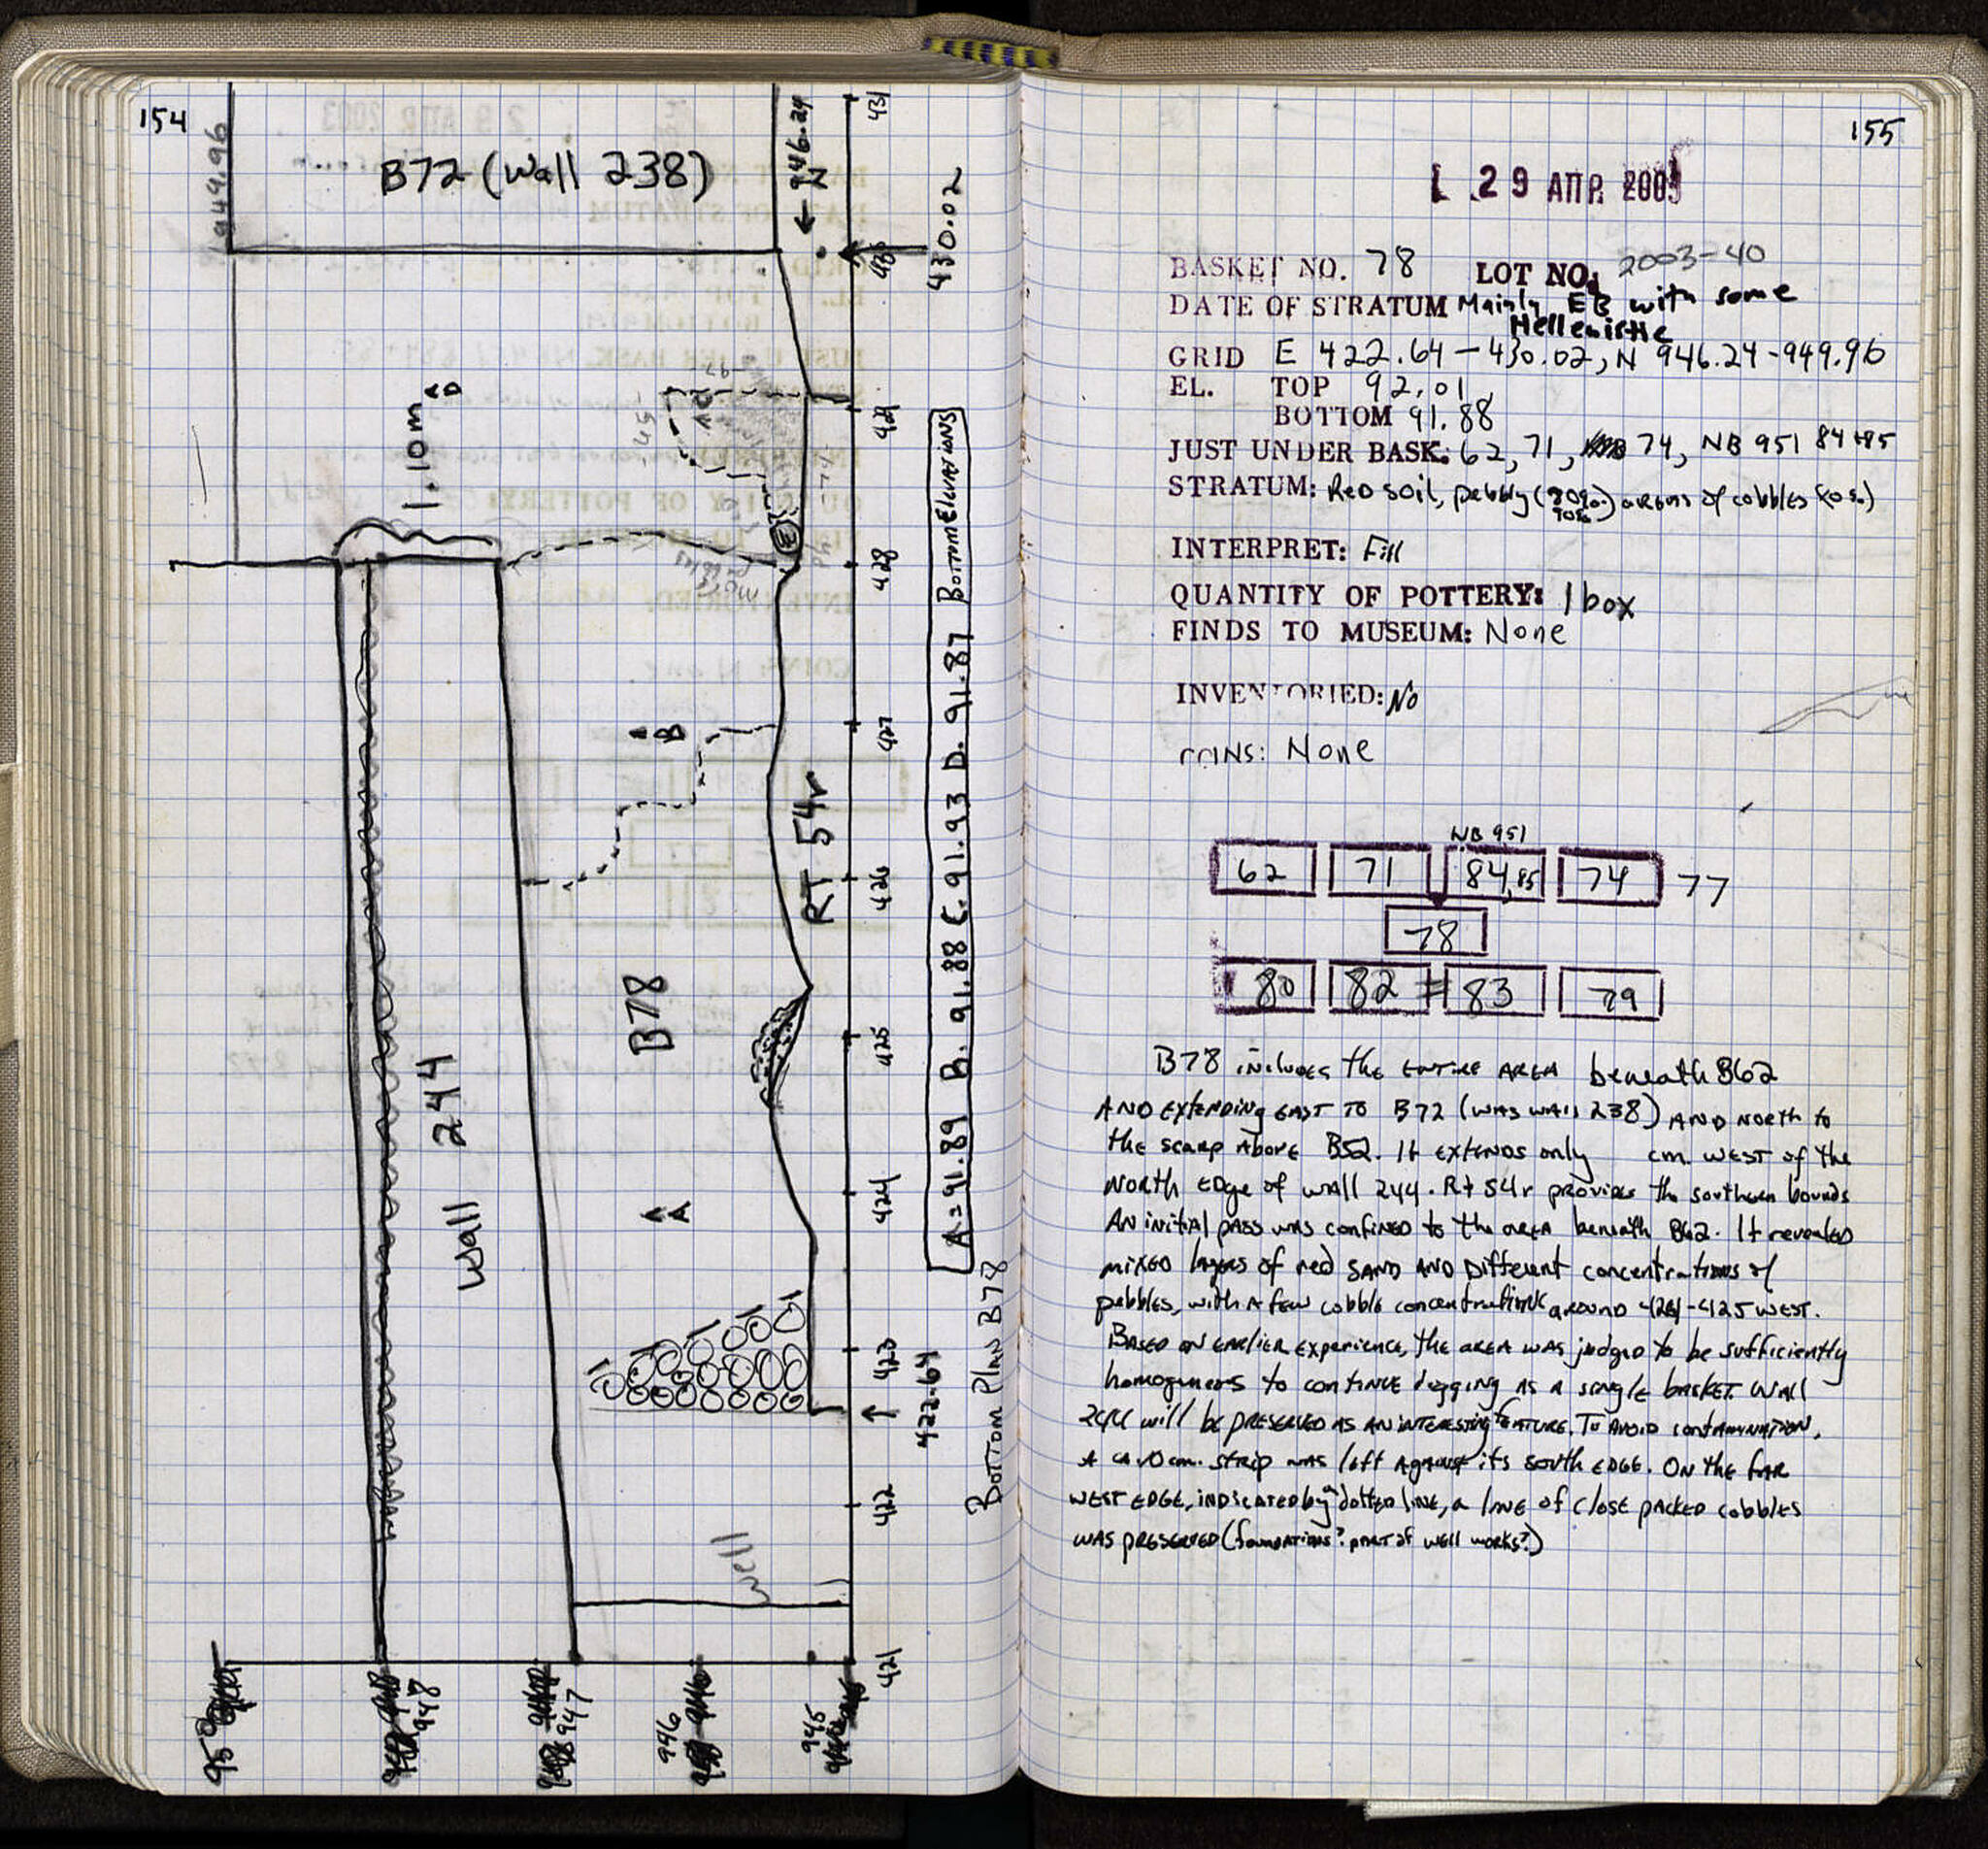 154
949.96
B72 (Wall 238)
946.24
N
431
430.02
1.10m
D
429
428
427
426
425
424
423
422
421
B
RT 54r
B78
A
Wall 244
Well
422.64
A = 91.89 B. 91.88 C. 91.93 D. 91.87 Bottom Elevations
Bottom Plan B78
950
948
947
946
945
155
29 ΑΠΡ. 2003
BASKET NO. 78 LOT NO. 2003-40
DATE OF STRATUM Mainly EB with some
Hellenistic
GRID E 422.64-430.02, N 946.24-949.96
EL. TOP 92.01
BOTTOM 91.88
JUST UNDER BASK: 62, 71, 74, NB 951 84+85
STRATUM: Red soil, pebbly of cobbles
INTERPRET: Fill
QUANTITY OF POTTERY: 1 box
FINDS TO MUSEUM: None
INVENTORIED: No
COINS: None
NB 951
62 71 84,85 74 77
78
80 82 83 79
B78 includes the entire area beneath B62
and extending east to B72 (was wall 238) and north to
the scarp above B52. It extends only cm. west of the
north edge of wall 244. Rt 54r provides the southern bounds
An initial pass was confined to the area beneath B62. It revealed
mixed layers of red sand and different concentrations of
pebbles, with a few cobble concentrations around 424-425 west.
Based on earlier experience, the area was judged to be sufficiently
homogeneous to continue digging as a single basket. Wall
244 will be preserved as an interesting feature. To avoid contamination,
a ca. 10 cm. strip was left against its south edge. On the far
west edge, indicated by a dotted line, a line of close packed cobbles
was preserved (foundations? part of well works?)